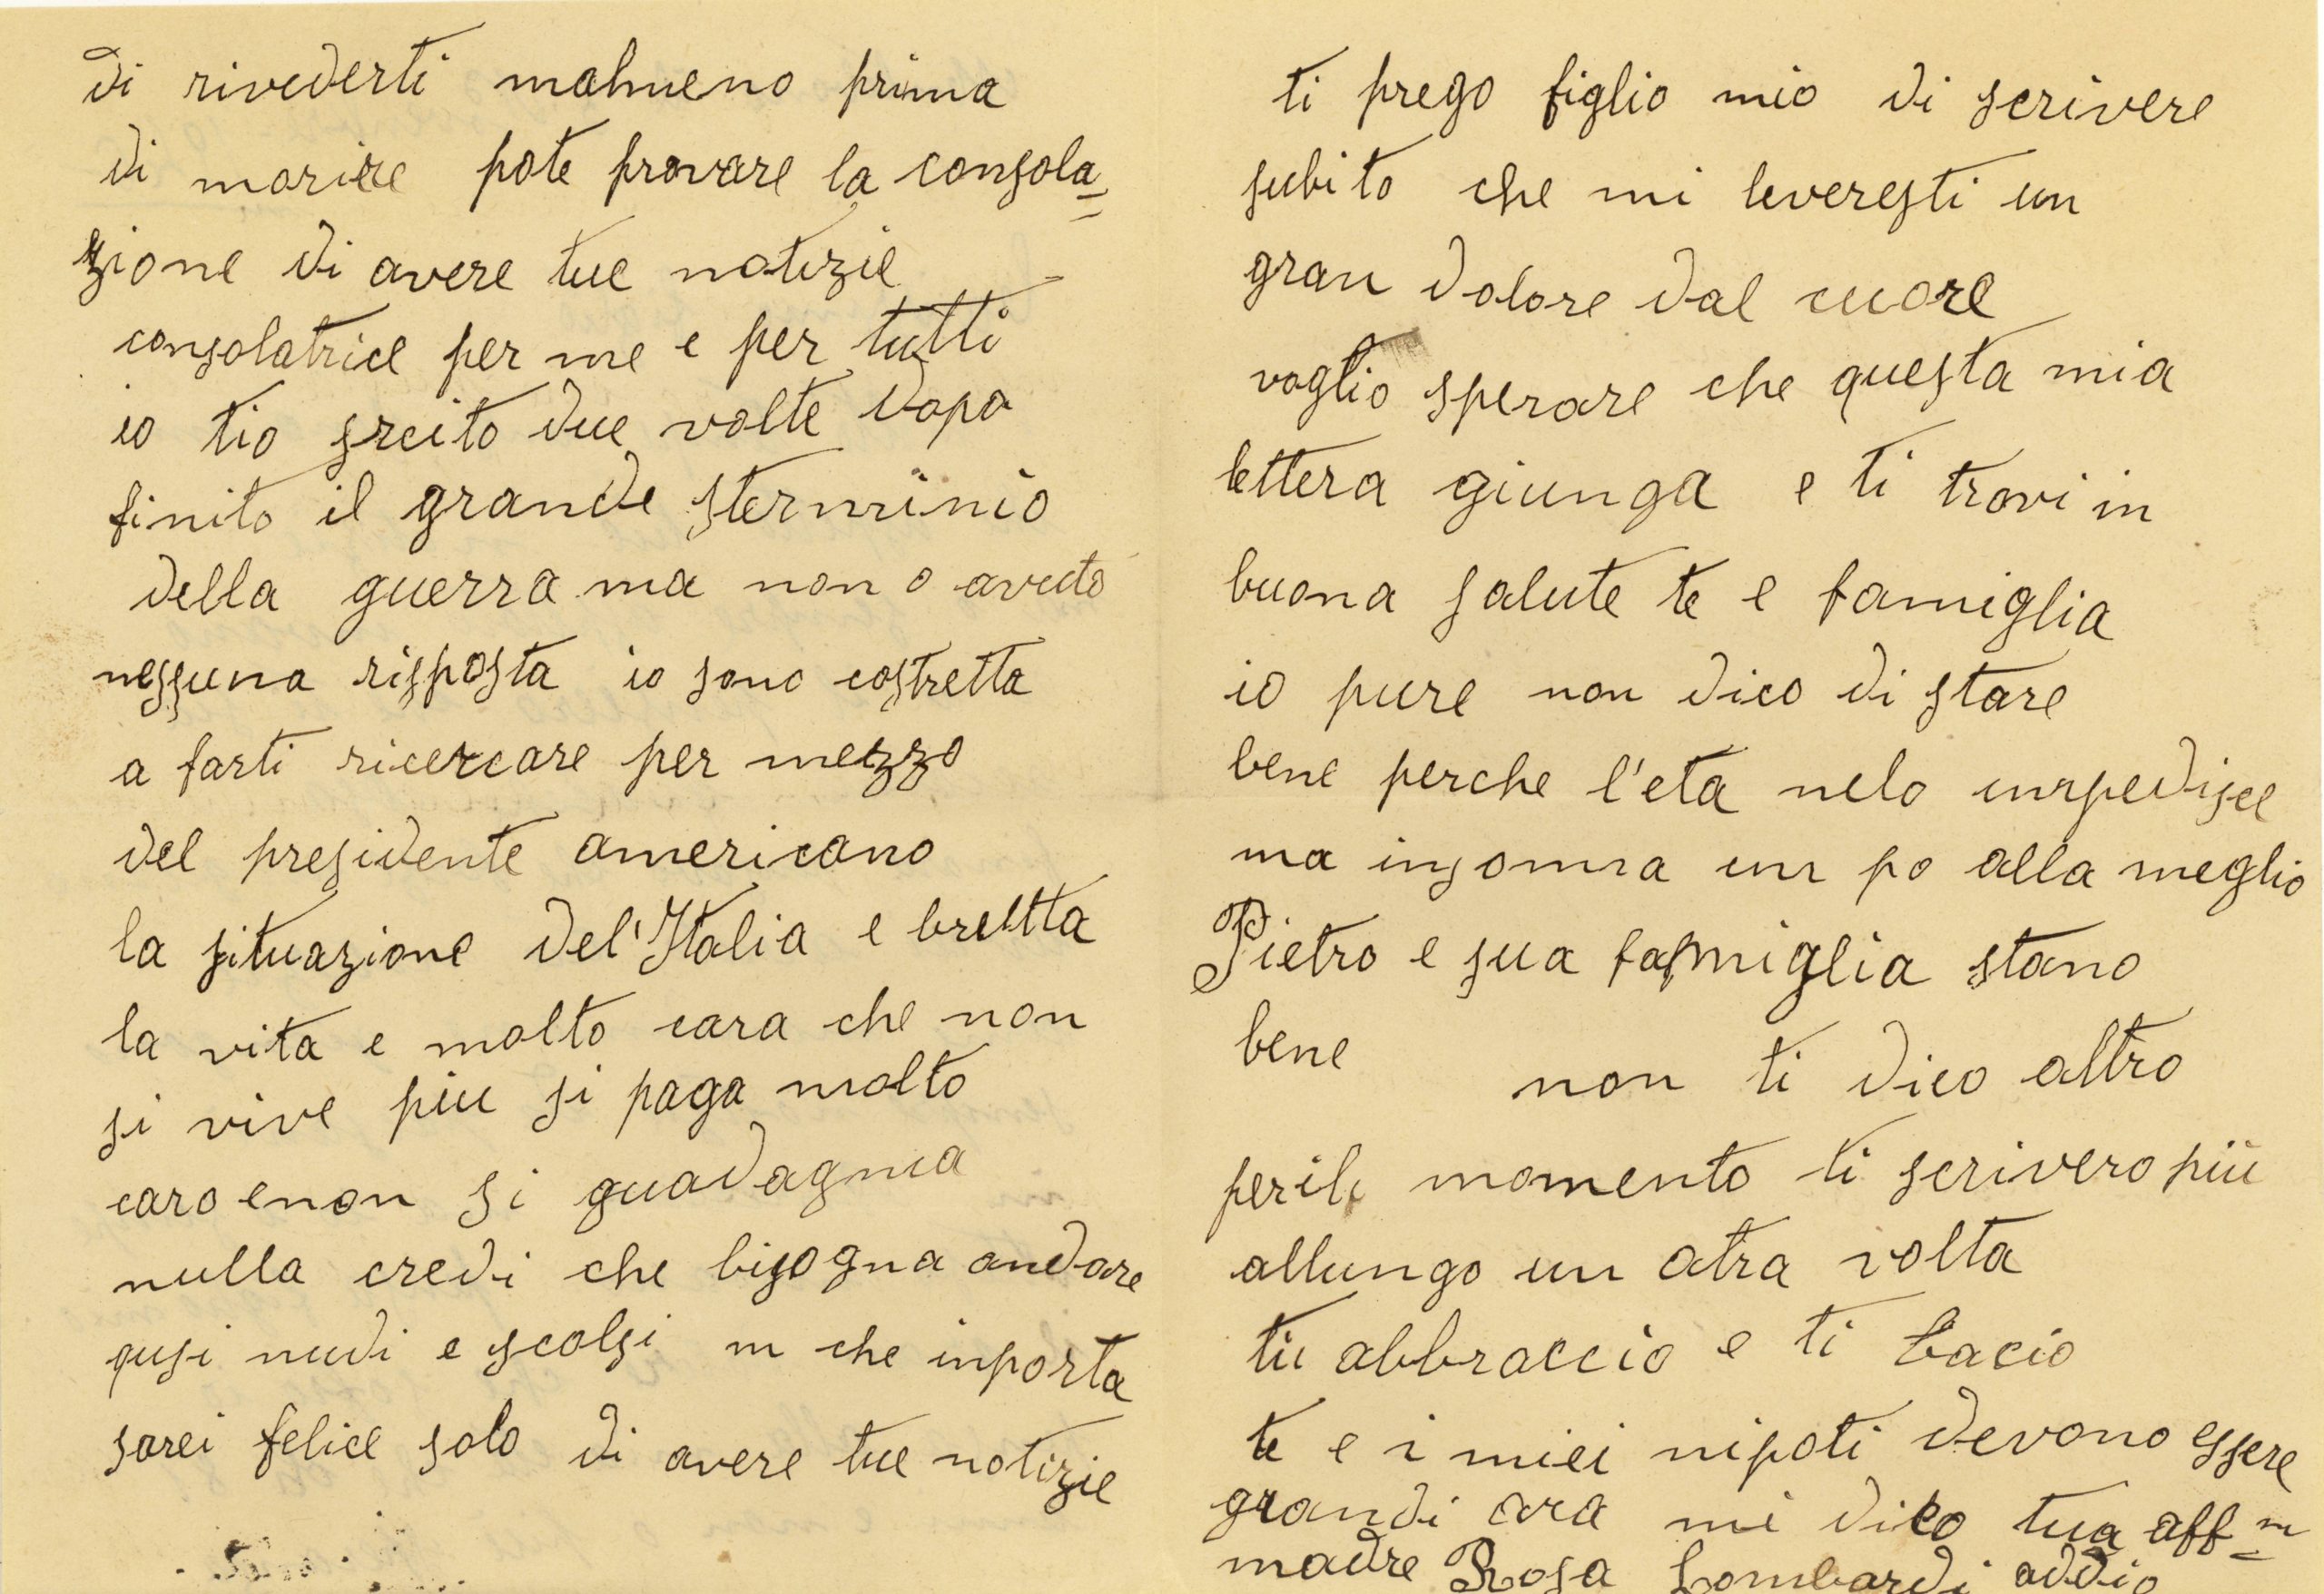 di rivederti malmeno prima
di morire pote provare la consola=
zione di avere tue notizie
consolatrice per me e per tutti
io tio srcito due volte dopo
finito il grande sterminio
della guerra ma non o avuto
nessuna risposta io sono costretta
a farti ricercare per mezzo
del presidente americano
la situazione del'Italia e bruttta
la vita e molto cara che non
si vive piu si paga molto
caro enon si guadagnia
nulla credi che bisogna andare
qusi nudi e scolsi m che inporta
sarei felice solo di avere tue notizie
ti prego figlio mio di scrivere
subito che mi leveresti un
gran dolore dal cuore
voglio sperare che questa mia
lettera giunga e ti trovi in
buona salute te e famiglia
io pure non dico di stare
bene perche l'eta nelo inpedisce
ma insoma un po alla meglio
Pietro e sua famiglia stano
bene non ti dico altro
peril momento ti scrivero più
allungo un atra volta
tii abbraccio e ti bacio
te e i miei nipoti devono essere
grandi ora mi dico tua aff m=
madre Rosa Lombardi addio